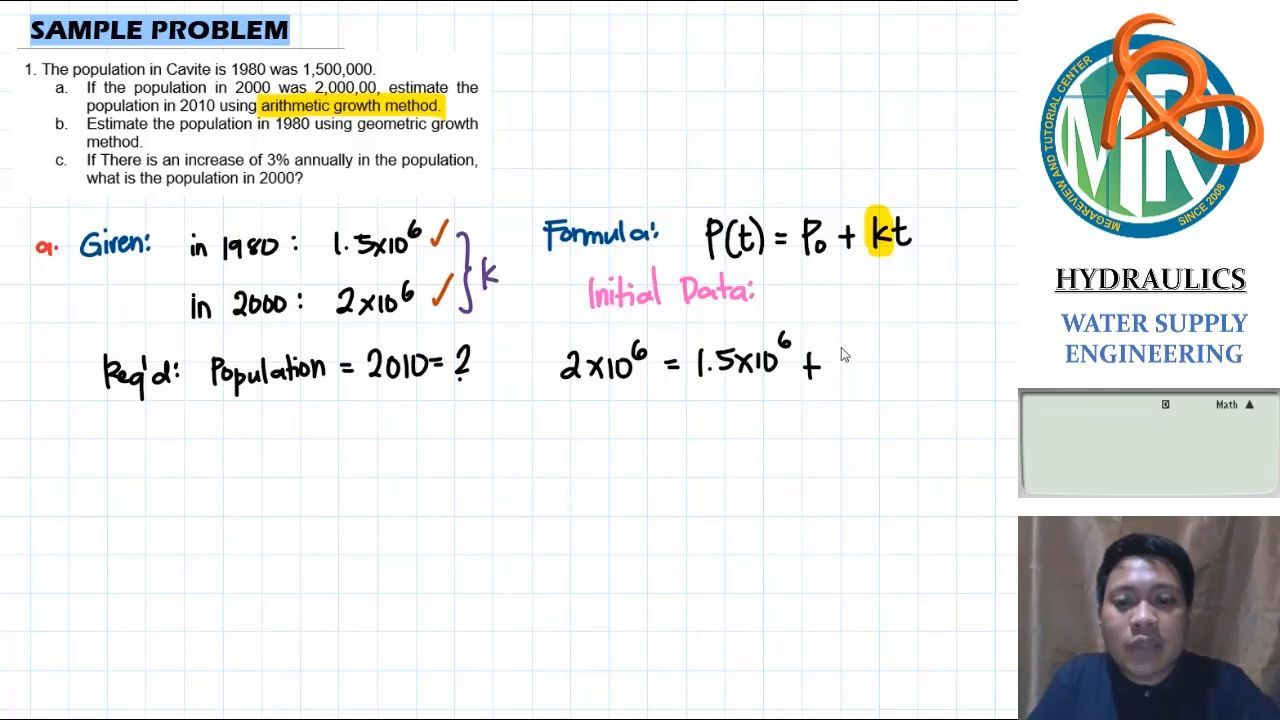 SAMPLE PROBLEM
1. The population in Cavite is 1980 was 1,500,000.
a. If the population in 2000 was 2,000,00, estimate the
population in 2010 using arithmetic growth method.
b. Estimate the population in 1980 using geometric growth
method.
c. If There is an increase of 3% annually in the population,
what is the population in 2000?
a. Given: in 1980 : 1.5x10⁶ ✓
in 2000 : 2x10⁶ ✓
} k
Req'd: Population = 2010 = ?
Formula: P(t) = P₀ + kt
Initial Data:
2x10⁶ = 1.5x10⁶ +
MEGAREVIEW AND TUTORIAL CENTER
MR
SINCE 2008
HYDRAULICS
WATER SUPPLY
ENGINEERING
D Math ▲